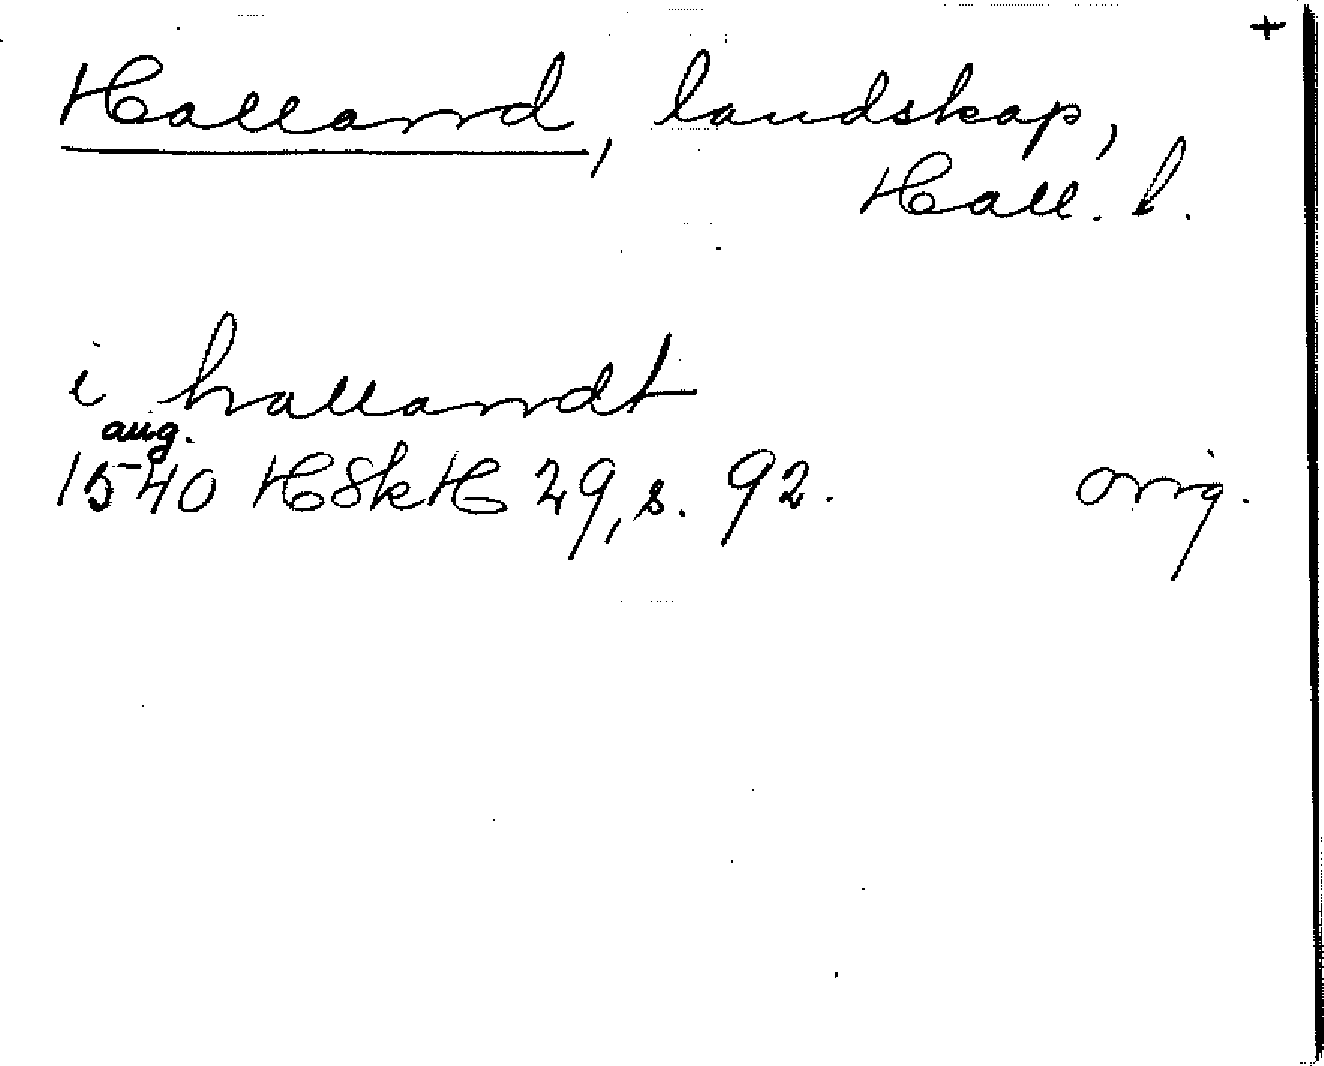 +
Halland, landskap,
Hall. l.
i hallandt
aug.
1540 HSkH 29, s. 92. orig.